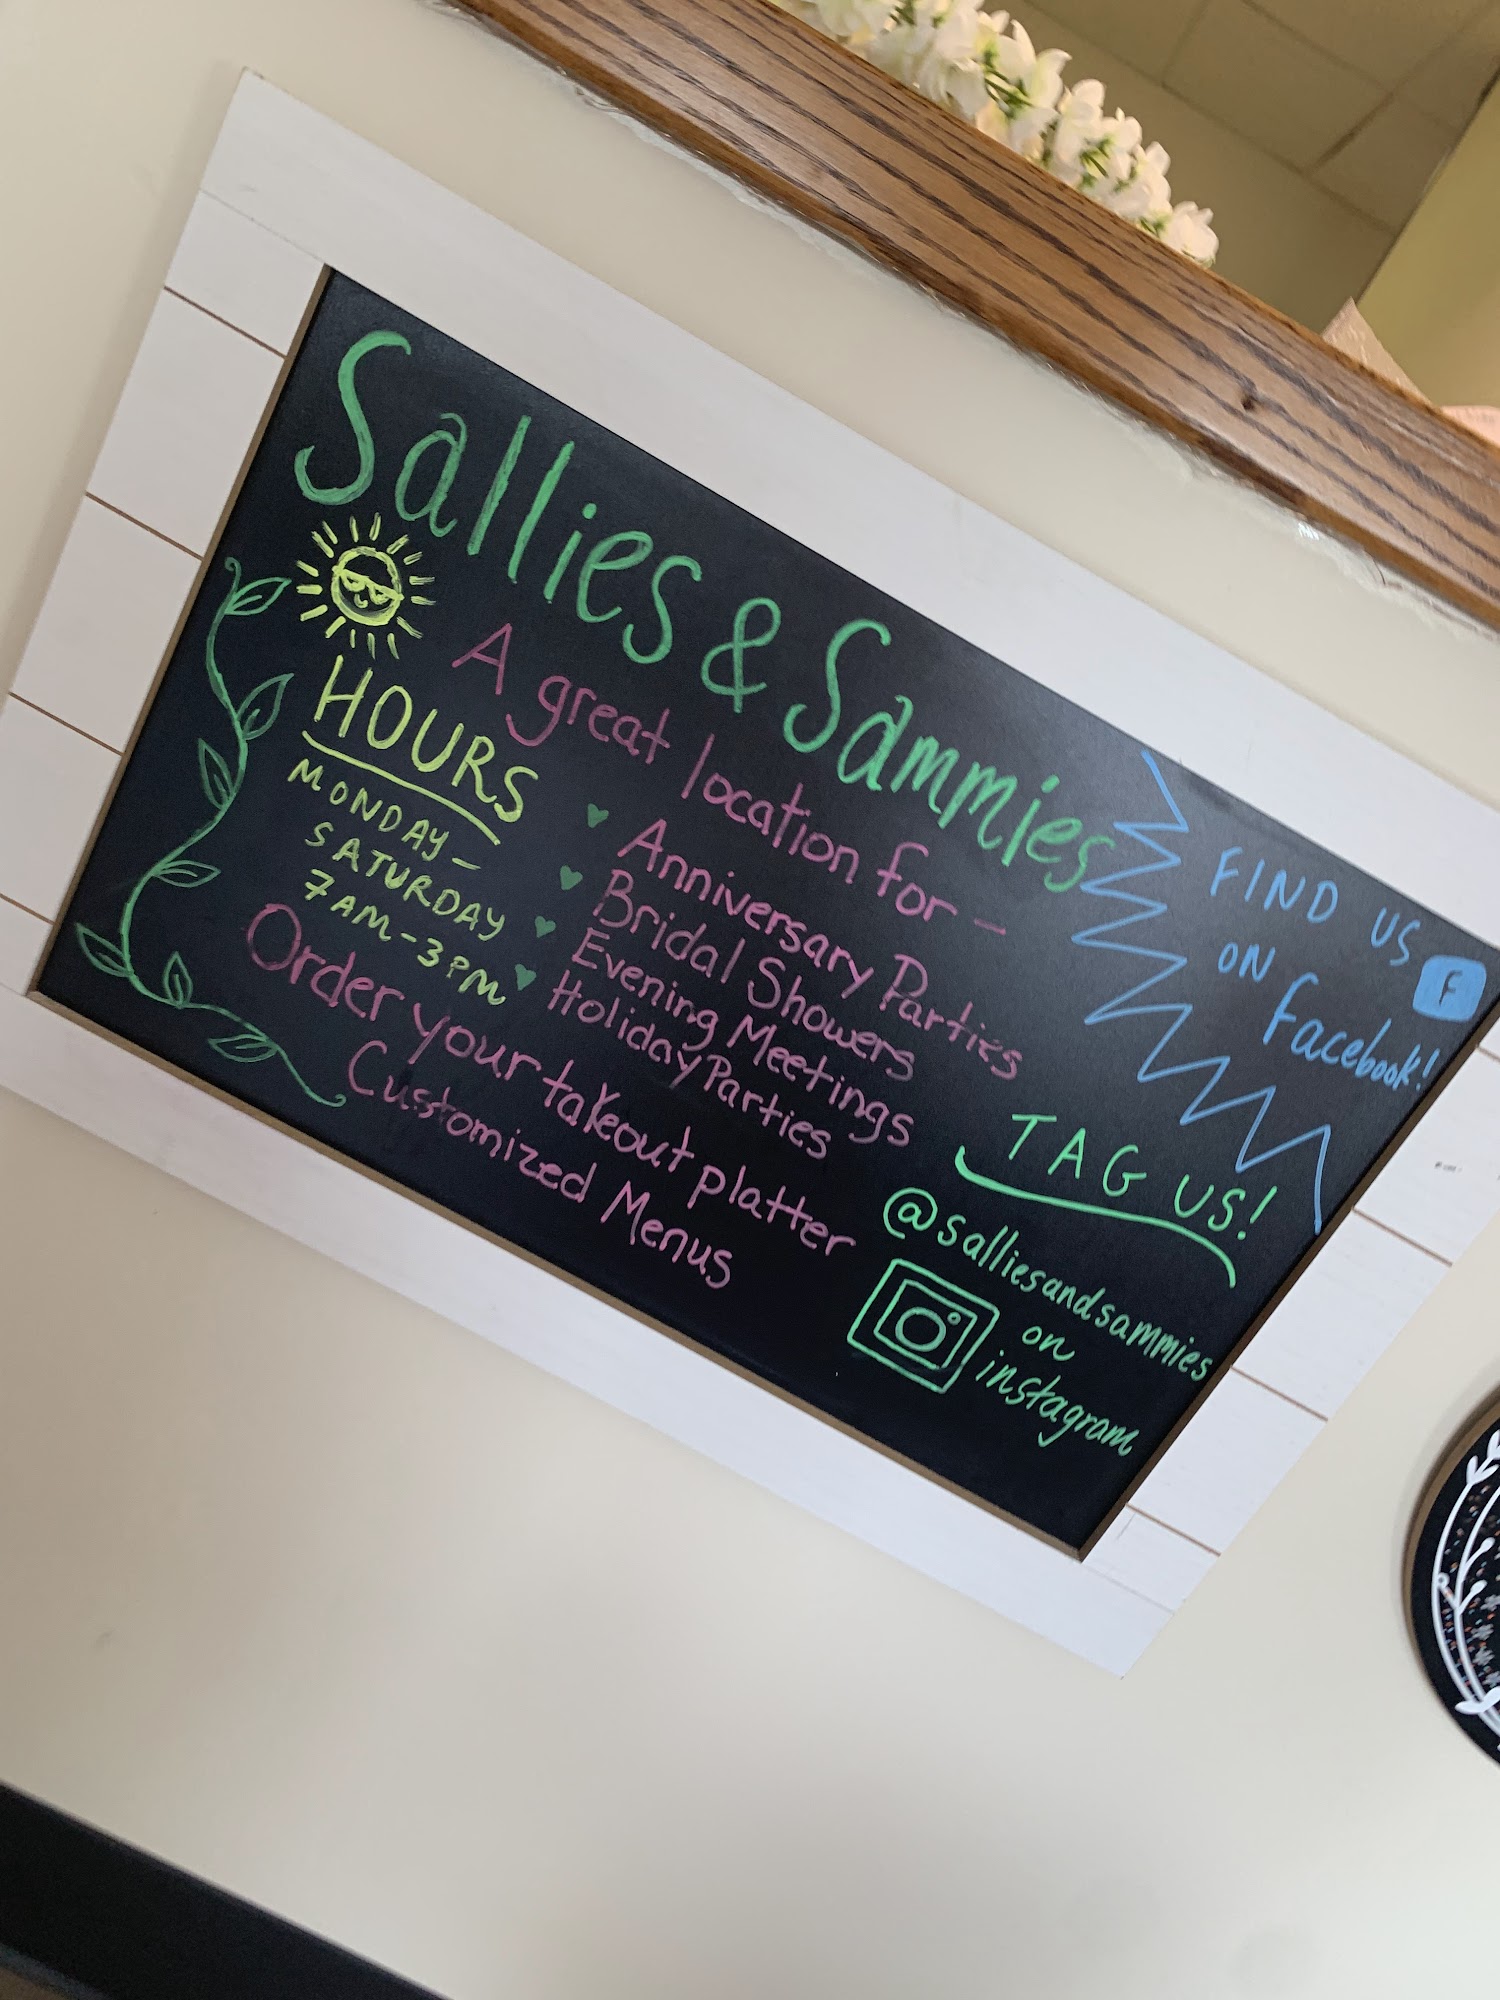 Sallies & Sammies
A great location for -
HOURS
MONDAY -
SATURDAY
7AM-3PM
Anniversary Parties
Bridal Showers
Evening Meetings
Holiday Parties
Order your takeout platter
Customized Menus
FIND US
ON
Facebook!
F
TAG US!
@salliesandsammies
on
instagram